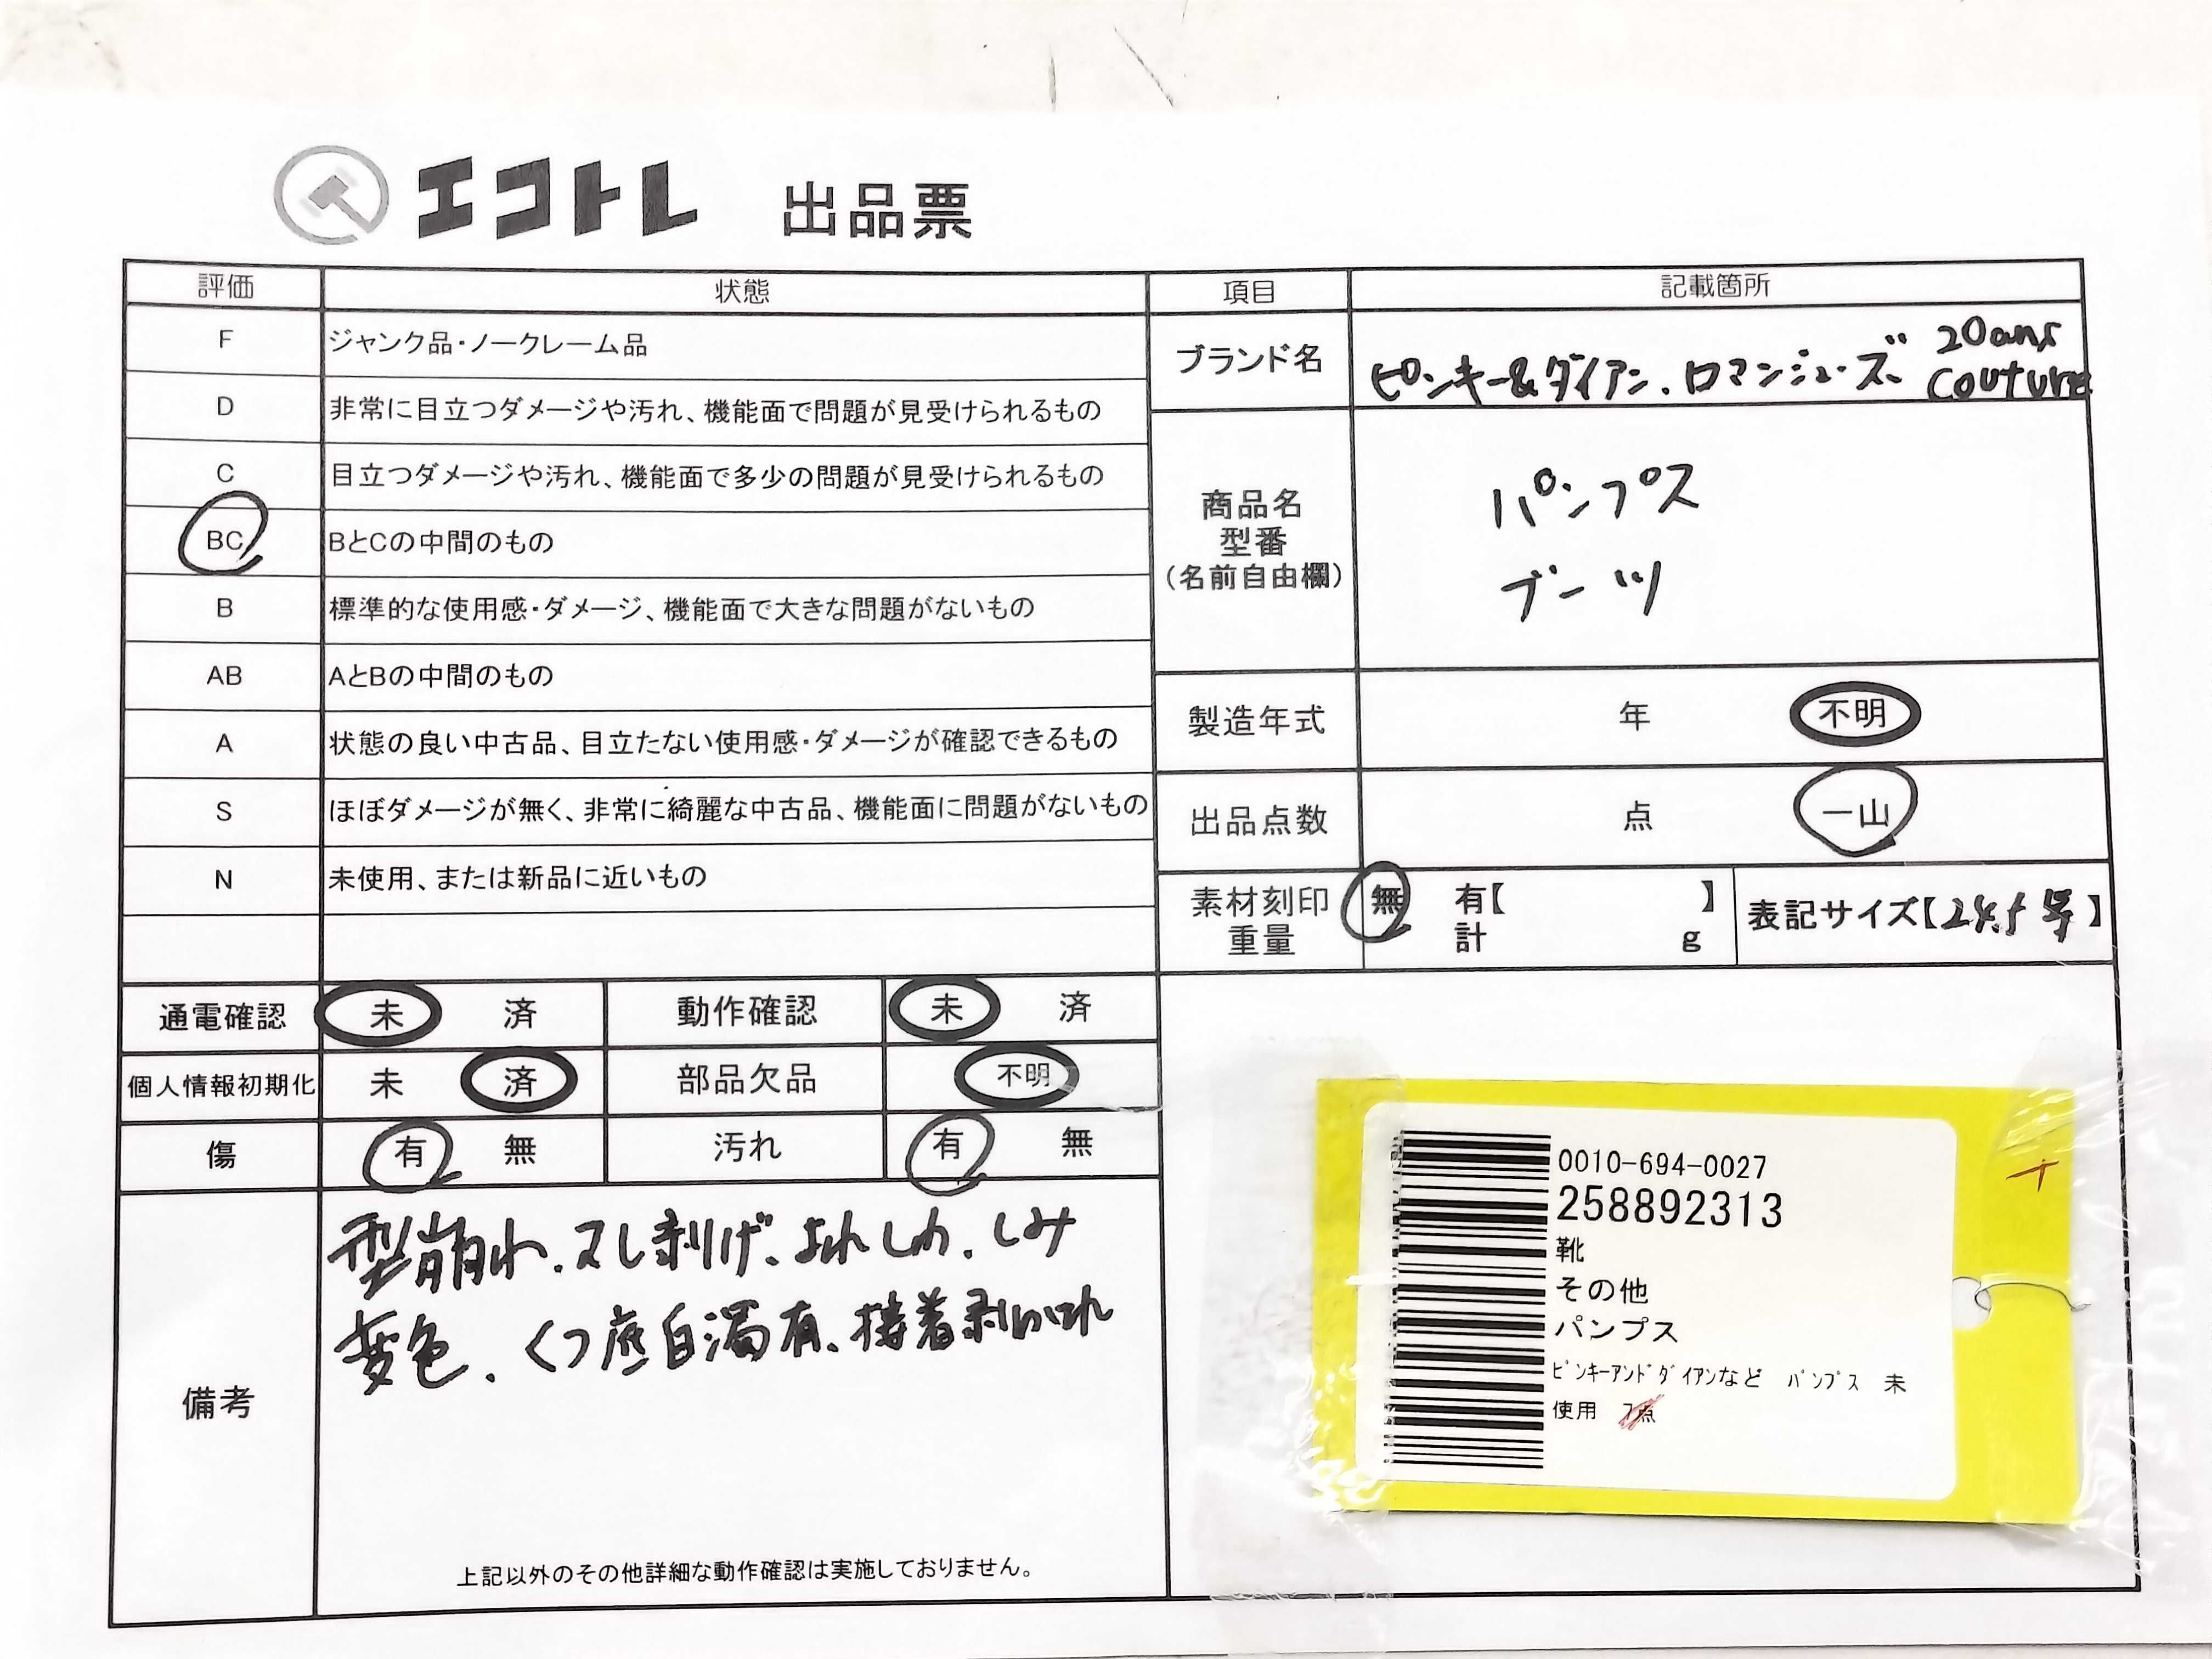 エコトレ 出品票
評価 状態 項目 記載箇所
F ジャンク品・ノークレーム品
D 非常に目立つダメージや汚れ、機能面で問題が見受けられるもの
C 目立つダメージや汚れ、機能面で多少の問題が見受けられるもの
BC BとCの中間のもの
B 標準的な使用感・ダメージ、機能面で大きな問題がないもの
AB AとBの中間のもの
A 状態の良い中古品、目立たない使用感・ダメージが確認できるもの
S ほぼダメージが無く、非常に綺麗な中古品、機能面に問題がないもの
N 未使用、または新品に近いもの
ブランド名 ピンキー&ダイアン、ロマンシューズ、20ans
couture
商品名
型番
(名前自由欄)
パンプス
ブーツ
製造年式 年 不明
出品点数 点 一山
素材刻印 無 有【 】
重量 計 g
表記サイズ【24.5 等】
通電確認 未 済 動作確認 未 済
個人情報初期化 未 済 部品欠品 不明
傷 有 無 汚れ 有 無
備考
型崩れ、スレ剥げ、よれしわ、しみ
変色、くつ底白濁有、接着剥がれ
上記以外のその他詳細な動作確認は実施しておりません。
0010-694-0027
258892313
靴
その他
パンプス
ﾋﾟﾝｷｰｱﾝﾄﾞﾀﾞｲｱﾝなど ﾊﾟﾝﾌﾟｽ 未
使用 7点